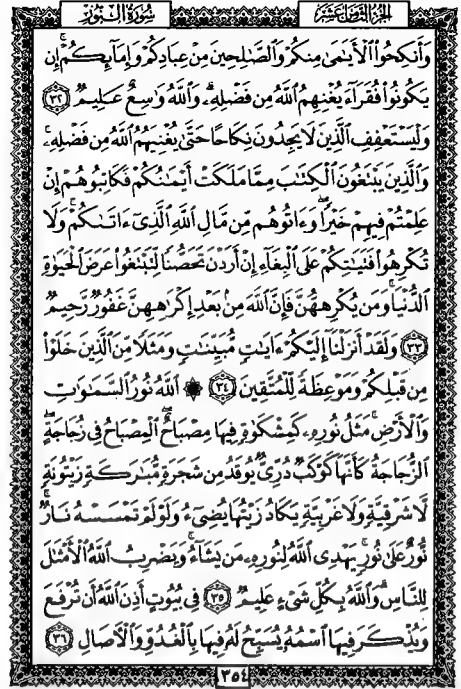 سُورَةُ النُّورِ
الجُزْءُ الثَّامِنَ عَشَرَ
وَأَنكِحُوا۟ ٱلْأَيَـٰمَىٰ مِنكُمْ وَٱلصَّـٰلِحِينَ مِنْ عِبَادِكُمْ وَإِمَآئِكُمْ ۚ إِن
يَكُونُوا۟ فُقَرَآءَ يُغْنِهِمُ ٱللَّهُ مِن فَضْلِهِۦ ۗ وَٱللَّهُ وَٰسِعٌ عَلِيمٌ ٣٢
وَلْيَسْتَعْفِفِ ٱلَّذِينَ لَا يَجِدُونَ نِكَاحًا حَتَّىٰ يُغْنِيَهُمُ ٱللَّهُ مِن فَضْلِهِۦ ۗ
وَٱلَّذِينَ يَبْتَغُونَ ٱلْكِتَـٰبَ مِمَّا مَلَكَتْ أَيْمَـٰنُكُمْ فَكَاتِبُوهُمْ إِنْ
عَلِمْتُمْ فِيهِمْ خَيْرًا ۖ وَءَاتُوهُم مِّن مَّالِ ٱللَّهِ ٱلَّذِىٓ ءَاتَىٰكُمْ ۚ وَلَا
تُكْرِهُوا۟ فَتَيَـٰتِكُمْ عَلَى ٱلْبِغَآءِ إِنْ أَرَدْنَ تَحَصُّنًا لِّتَبْتَغُوا۟ عَرَضَ ٱلْحَيَوٰةِ
ٱلدُّنْيَا ۚ وَمَن يُكْرِههُّنَّ فَإِنَّ ٱللَّهَ مِنۢ بَعْدِ إِكْرَٰهِهِنَّ غَفُورٌ رَّحِيمٌ
٣٣ وَلَقَدْ أَنزَلْنَآ إِلَيْكُمْ ءَايَـٰتٍ مُّبَيِّنَـٰتٍ وَمَثَلًا مِّنَ ٱلَّذِينَ خَلَوْا۟
مِن قَبْلِكُمْ وَمَوْعِظَةً لِّلْمُتَّقِينَ ٣٤ ۞ ٱللَّهُ نُورُ ٱلسَّمَـٰوَٰتِ
وَٱلْأَرْضِ ۚ مَثَلُ نُورِهِۦ كَمِشْكَوٰةٍ فِيهَا مِصْبَاحٌ ۖ ٱلْمِصْبَاحُ فِى زُجَاجَةٍ ۖ
ٱلزُّجَاجَةُ كَأَنَّهَا كَوْكَبٌ دُرِّىٌّ يُوقَدُ مِن شَجَرَةٍ مُّبَـٰرَكَةٍ زَيْتُونَةٍ
لَّا شَرْقِيَّةٍ وَلَا غَرْبِيَّةٍ يَكَادُ زَيْتُهَا يُضِىٓءُ وَلَوْ لَمْ تَمْسَسْهُ نَارٌ ۚ
نُّورٌ عَلَىٰ نُورٍ ۗ يَهْدِى ٱللَّهُ لِنُورِهِۦ مَن يَشَآءُ ۚ وَيَضْرِبُ ٱللَّهُ ٱلْأَمْثَـٰلَ
لِلنَّاسِ ۗ وَٱللَّهُ بِكُلِّ شَىْءٍ عَلِيمٌ ٣٥ فِى بُيُوتٍ أَذِنَ ٱللَّهُ أَن تُرْفَعَ
وَيُذْكَرَ فِيهَا ٱسْمُهُۥ يُسَبِّحُ لَهُۥ فِيهَا بِٱلْغُدُوِّ وَٱلْـَٔاصَالِ ٣٦
٣٥٤